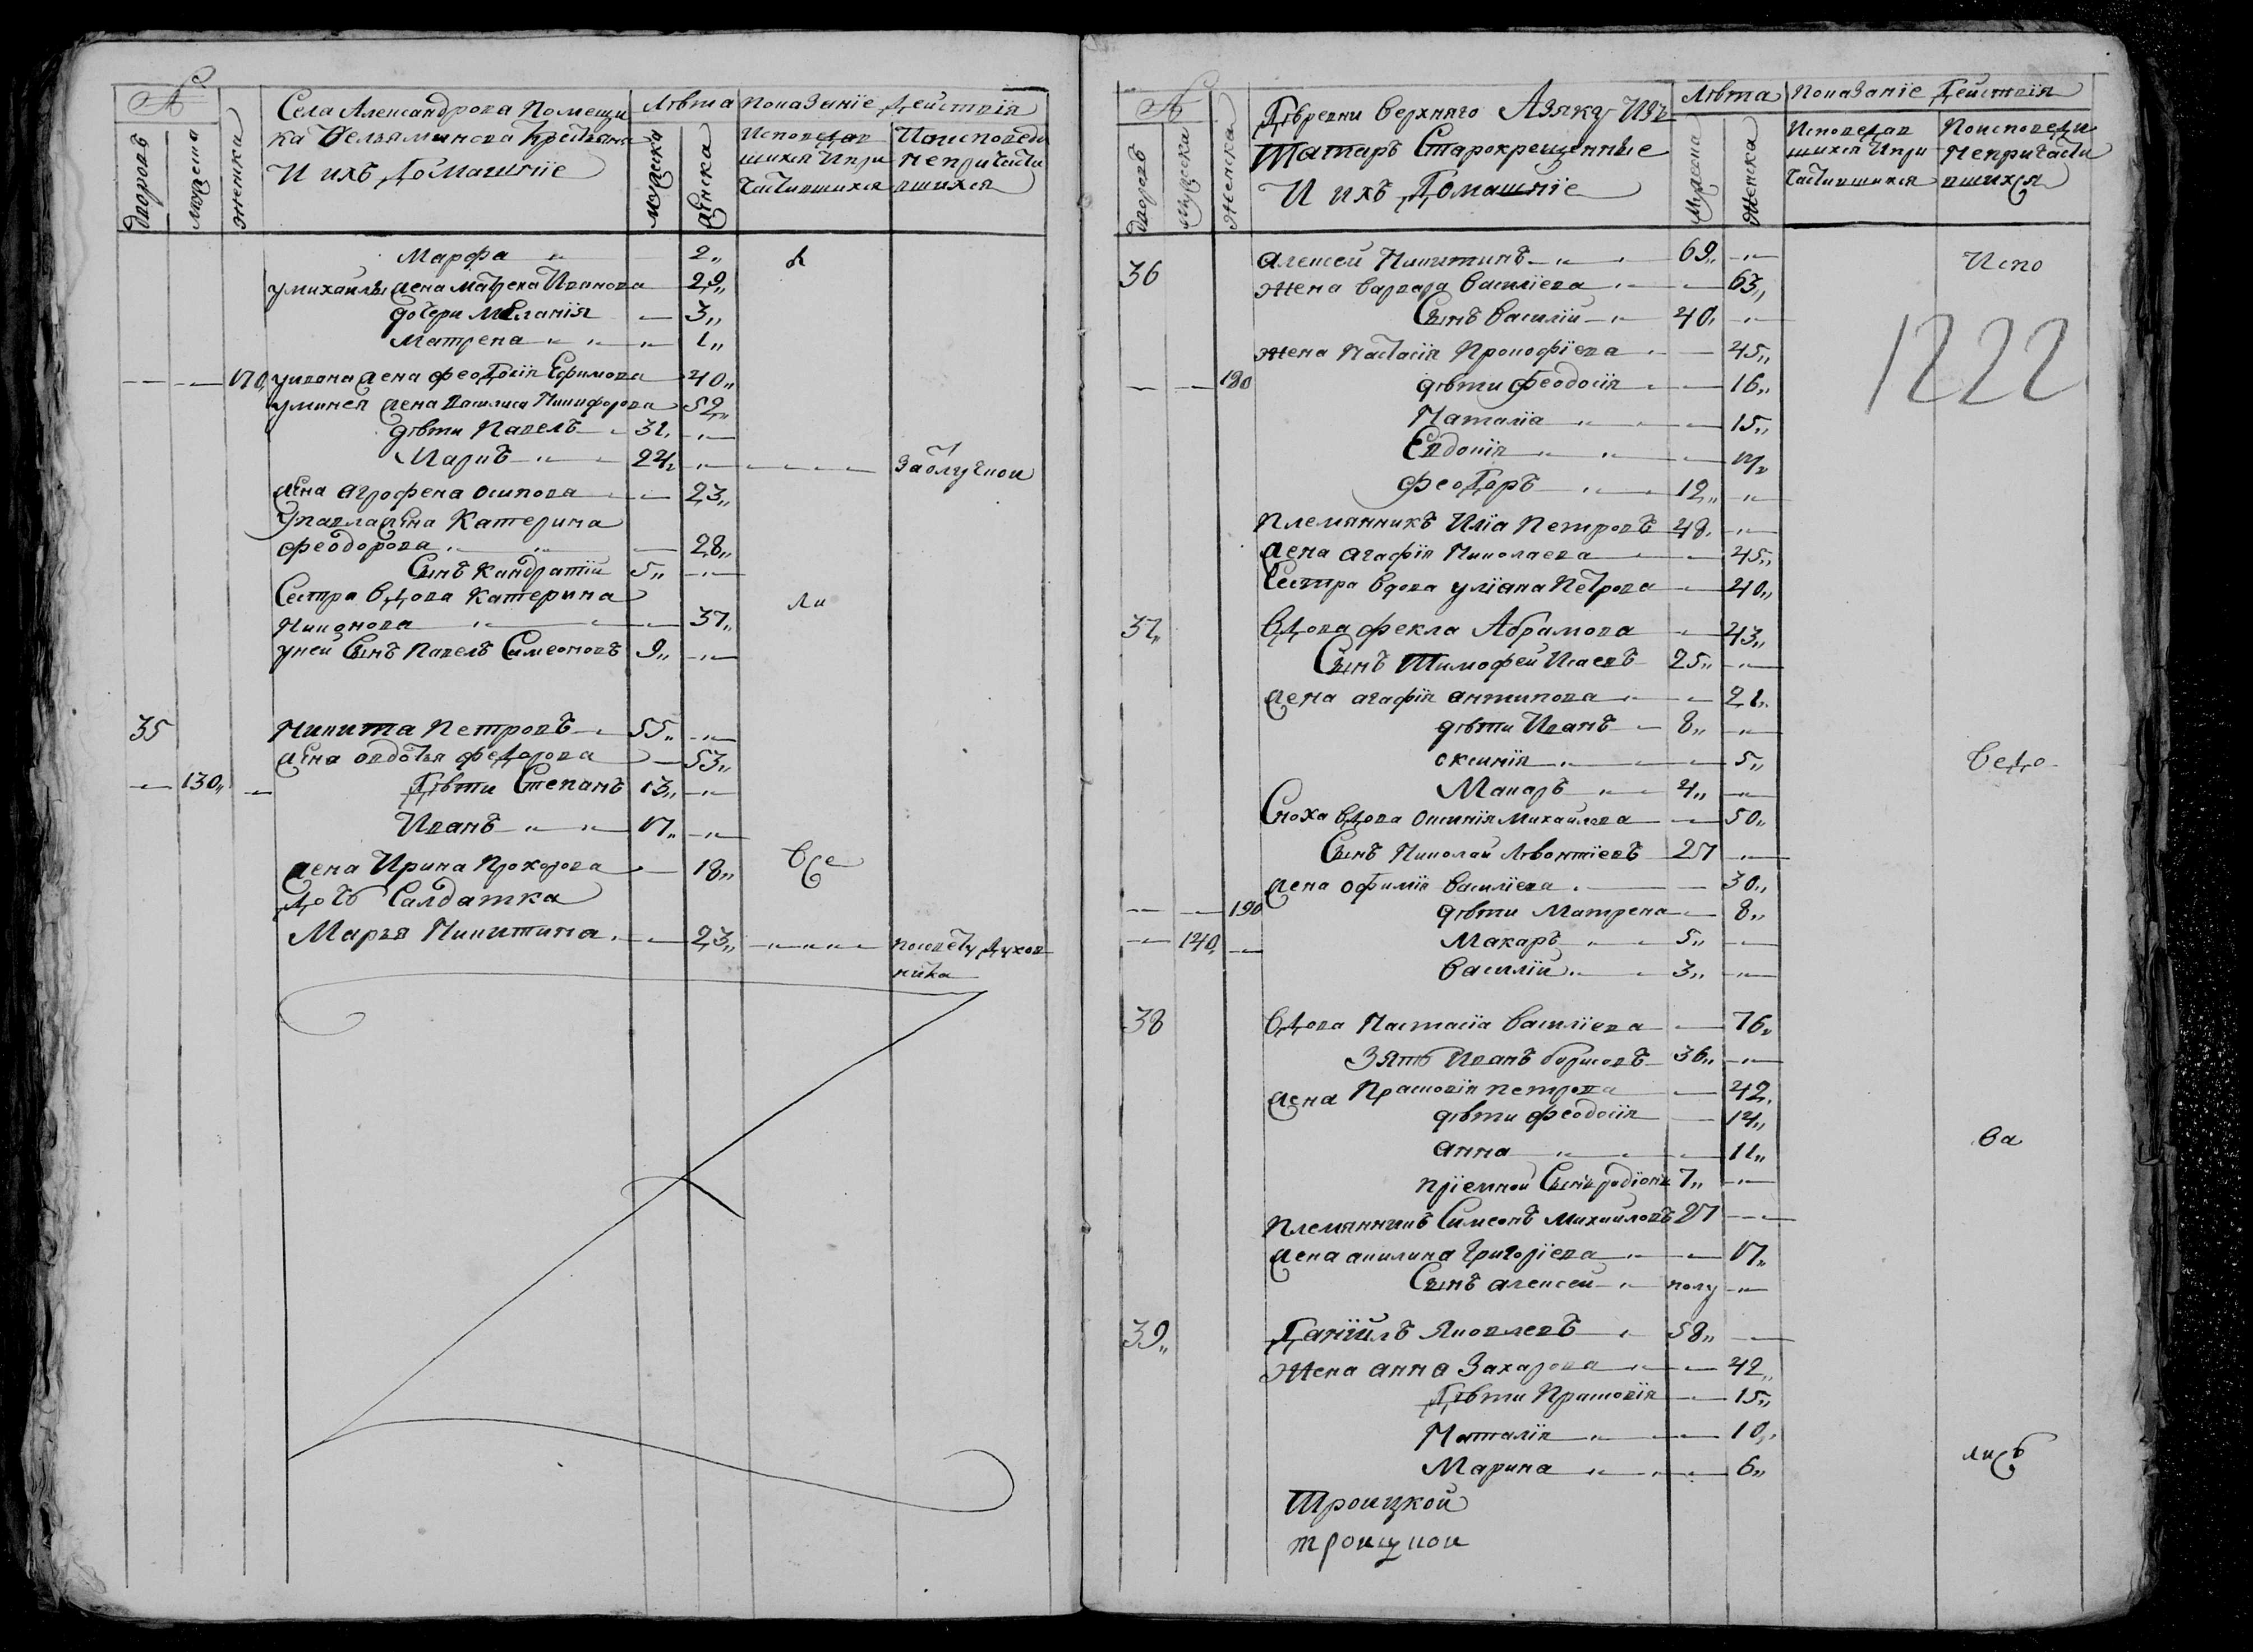 №
дворовъ
мужеска
женска
Села Александрова Помещи
ка Вельяминова Крестьяне
И ихъ Домашніе
Лѣта
мужеска
женска
Показаніе Действія
Исповедав
шихся И при
частившихся
И исповеда
непричасти
вшихся
Марфа 2
у михайлы жена матрена Иванова 29
дочери Меланія 3
Матрена 1
170 у ивана жена феодосія Ефимова 40
у минея жена василиса Никифорова 52
дѣти Павелъ 31
Маркъ 24 За отлучкои
жена агрофена осипова 23
У павла жена Катерина
феодорова 28
Сынъ Кандратіи 5
Сестра вдова Катерина ли
Никонова 37
у неи Сынъ Павелъ Симеоновъ 9
35 Никита Петровъ 55
жена овдотья федорова 53
130 Дѣти Степанъ 13
Иванъ 17
жена Ирина Прохорова 18 Все
Дочь Салдатка
Марья Никитина 23 посовету духов
ника
№
дворовъ
мужеска
женска
Дѣревни Верхняго Азяку Изъ
Татаръ Старокрещенные
И ихъ Домашніе
Лѣта
мужеска
женска
Показаніе Действія
Исповедав
шихся И при
частившихся
Поисповеди
непричасти
вшихся
36 алексеи Никитинъ 69 Испо
жена варвара Василіева 63
Сынъ Василіи 40
1222
жена Настасія Прокофіева 45
180 дѣти феодосія 16
Наталіа 15
Евдокія
феодоръ 12
Племянникъ Иліа Петровъ 48
жена агафія Николаева 45
Сестра вдова уліана Петрова 40
37 Вдова фекла Абрамова 43
Сынъ Тимофеи Исаевъ 25
жена агафія антипова 21
дѣти Иванъ 8
оксинія 5 Ведо
Макаръ 4
Сноха вдова Оксинія Михаилова 50
Сынъ Николаи Лѣонтіевъ 27
жена офимія Василіева 30
190 дѣти Матрена 8
140 Макаръ 5
Василіи 3
38 Вдова Настасіа Василіева 76
Зять Иванъ борисовъ 36
жена Прасковія петрова 42
дѣти феодосія 14
анна 11 ва
пріемнои Сынъ родіонъ 7
Племянникъ Симеонъ михаиловъ 27
жена акилина Григоріева 17
Сынъ алексеи полу
39 Даніилъ Яковлевъ 58
жена анна Захарова 42
Дѣти Прасковія 15
Наталія 10
Марина 6 лись
Троицкой
троицкои